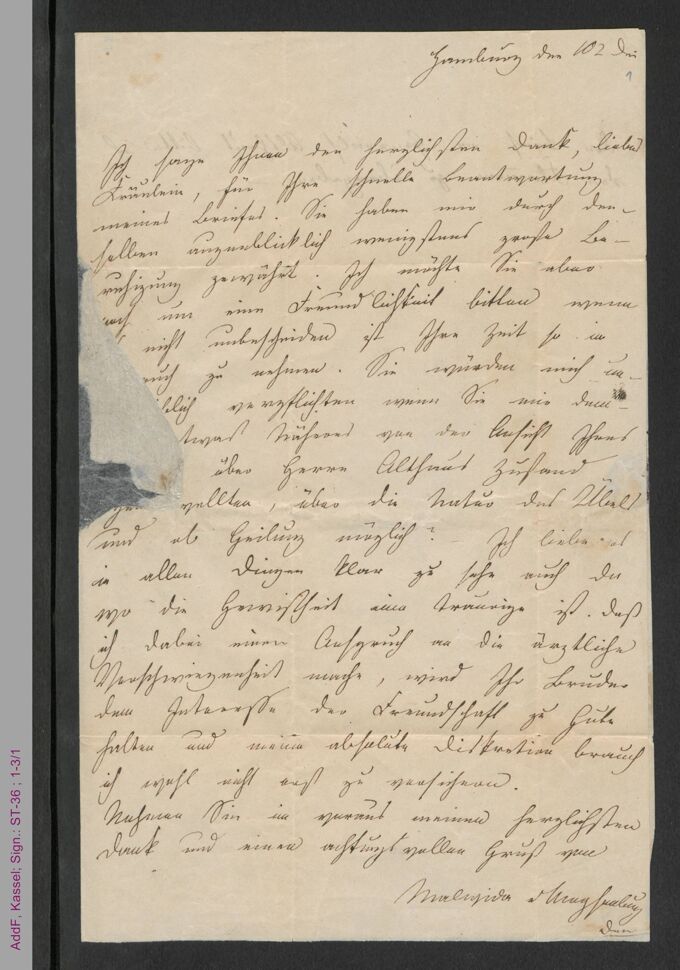 Hamburg den 10
1
Ich sage Ihnen den herzlichsten Dank, liebes
Fräulein, für Ihre schnelle Beantwortung
meines Briefes. Sie haben mir durch den-
selben augenblicklich wenigstens große Be-
ruhigung gewährt. Ich möchte Sie aber
noch um eine Freundlichkeit bitten wenn
nicht unbescheiden ist Ihre Zeit so in
zu nehmen. Sie würden mich un-
verpflichten wenn Sie mir
Näheres von der Ansicht Ihres
über Herrn Althaus Zustand
wollten, über die Natur des Übels
und ob Heilung möglich? – Ich liebe es
in allen Dingen klar zu sehn auch da
wo die Gewißheit eine traurige ist. Daß
ich dabei einen Anspruch an die ärztliche
Verschwiegenheit mache, wird Ihr Bruder
dem Interesse der Freundschaft zu Gute
halten und meine absolute Diskretion brauch
ich wohl nicht erst zu versichern.
Nehmen Sie im voraus meinen herzlichsten
Dank und einen achtungsvollen Gruß von
Malwida v Meysenbug
AddF, Kassel; Sign.: ST-36 ; 1-3/1